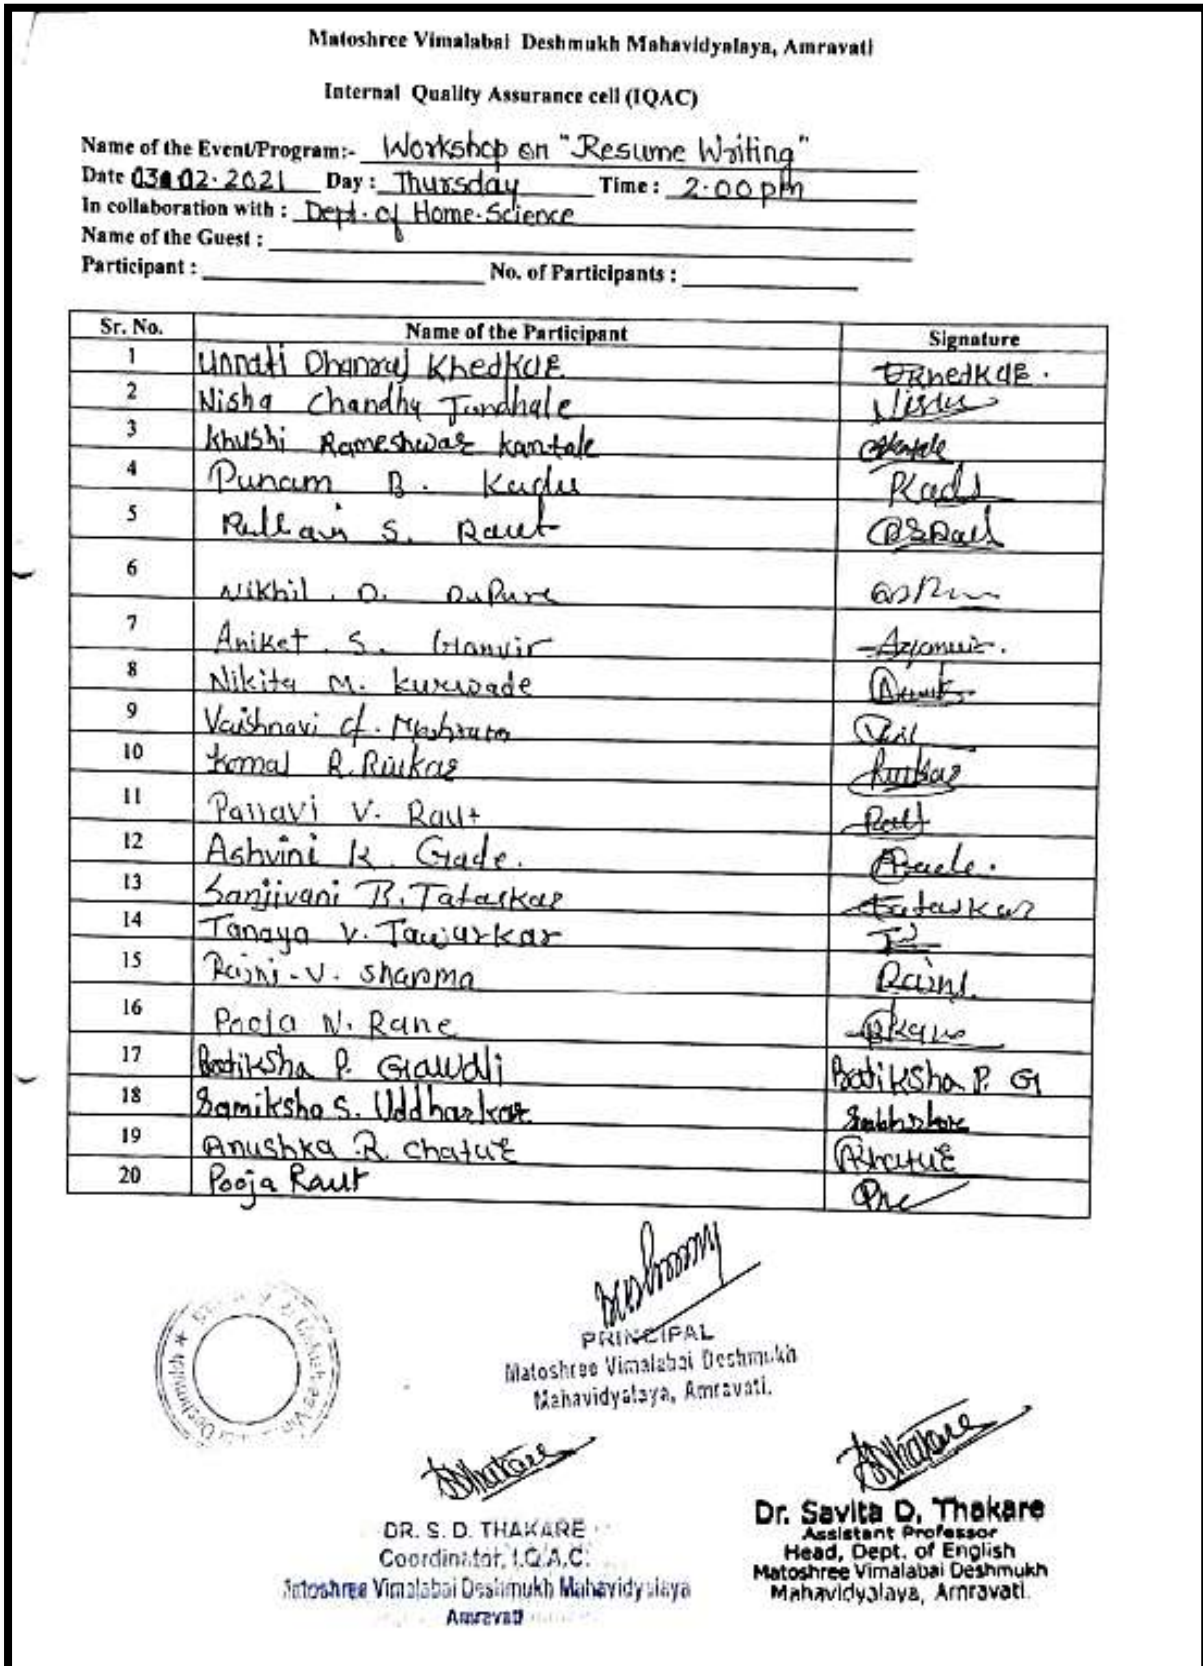 Matoshree Vimalabai Deshmukh Mahavidyalaya, Amravati
Internal Quality Assurance cell (IQAC)
Name of the Event/Program:- Workshop on "Resume Writing"
Date 03.02.2021 Day : Thursday Time : 2.00 pm
In collaboration with : Dept. of Home-Science
Name of the Guest :
Participant : No. of Participants :
Sr. No. Name of the Participant Signature
1 Unnati Dhanraj Khedkar
2 Nisha Chandhu Jundhale Nisha
3 Khushi Rameshwar Kantale
4 Punam B. Kadu
5 Pallavi S. Raut
6 Nikhil . D.
7 Aniket . S. Ganvir
8 Nikita M. Kurwade
9 Vaishnavi Meshram
10 Komal R. Raikar
11 Pallavi V. Raut Raut
12 Ashvini K. Gade.
13 Sanjivani B. Tataskar Tataskar
14 Tanaya V. Tawarkar
15 Rajni . V. Sharma Rajni.
16 Pooja N. Rane
17 Pratiksha P. Gawali Pratiksha P. G
18 Samiksha S. Uddharkar
19 Anushka R. Chature
20 Pooja Raut
PRINCIPAL
Matoshree Vimalabai Deshmukh
Mahavidyalaya, Amravati.
SDThakare
DR. S. D. THAKARE
Coordinator, I.Q.A.C.
Matoshree Vimalabai Deshmukh Mahavidyalaya
Amravati
SDThakare
Dr. Savita D. Thakare
Assistant Professor
Head, Dept. of English
Matoshree Vimalabai Deshmukh
Mahavidyalaya, Amravati.